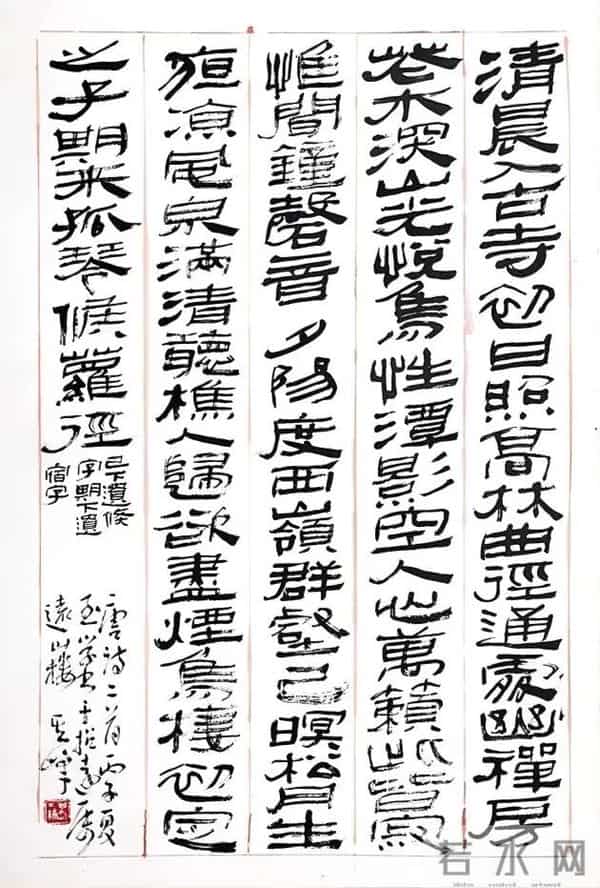 清晨入古寺初日照高林曲徑通處幽禪房
花木深山光悅鳥性潭影空人心萬籟此皆寂
惟聞鐘磬音夕陽度西嶺群壑已暝松月生
夜涼風泉滿清聽樵人歸欲盡煙鳥棲初定
之子期來孤琴候蘿徑
已下遺倏
字期下遺
宿字
唐詩二首丙子夏
遠山樓
若水网